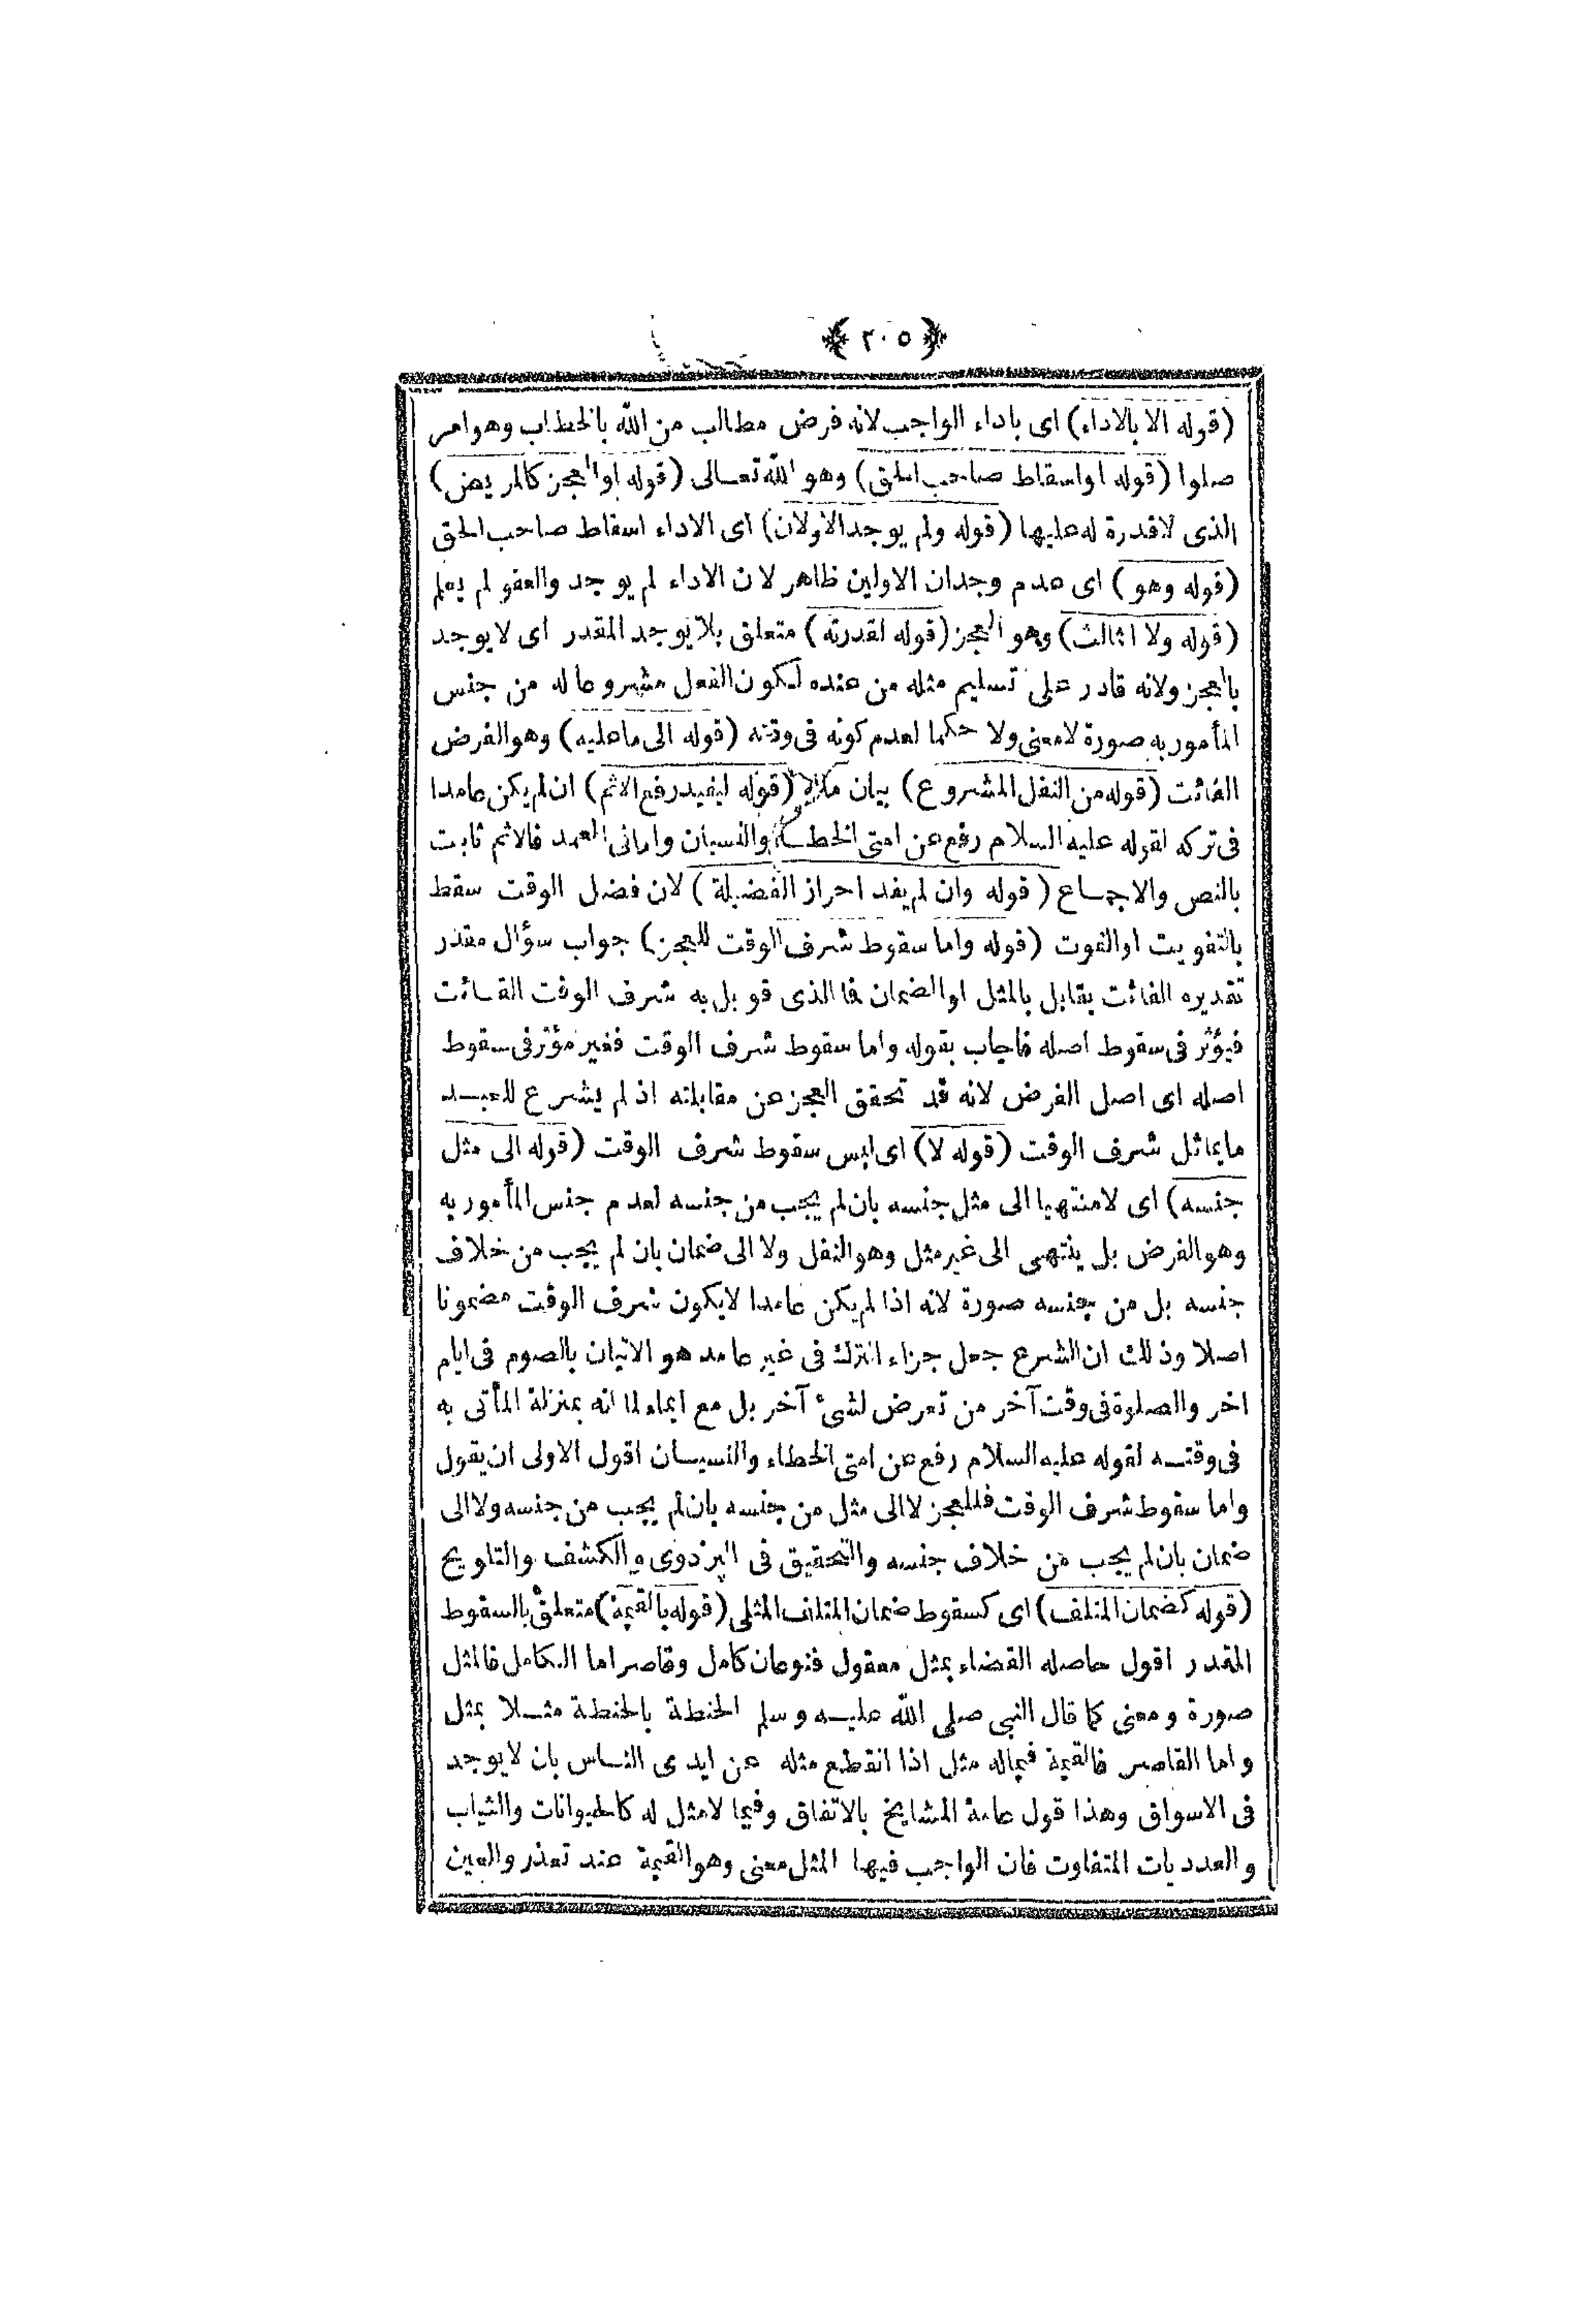 ﴿ ٢٠٥ ﴾
(قوله الا بالاداء) اى باداء الواجب لانه فرض مطالب من الله بالخطاب وهو امر
صلوا (قوله او اسقاط صاحب الحق) وهو الله تعالى (قوله او العجز كالمريض)
الذى لا قدرة له عليها (قوله ولم يوجد الاولان) اى الاداء اسقاط صاحب الحق
(قوله وهو) اى عدم وجدان الاولين ظاهر لان الاداء لم يوجد والعفو لم يعلم
(قوله ولا الثالث) وهو العجز (قوله لقدرته) متعلق بلا يوجد المقدر اى لا يوجد
بالعجز ولانه قادر على تسليم مثله من عنده لكون الفعل مشروعا له من جنس
المأمور به صورة لا معنى ولا حكما لعدم كونه فى وقته (قوله الى ما عليه) وهو الفرض
الفائت (قوله من النفل المشروع) بيان (قوله ليفيد رفع الاثم) ان لم يكن عامدا
فى تركه لقوله عليه السلام رفع عن امتى الخطاء والنسيان واما فى العمد فالاثم ثابت
بالنص والاجماع (قوله وان لم يفد احراز الفضيلة) لان فضل الوقت سقط
بالتفويت او الفوت (قوله واما سقوط شرف الوقت للعجز) جواب سؤال مقدر
تقديره الفائت يقابل بالمثل او الضمان فا الذى قوبل به شرف الوقت الفائت
فيؤثر فى سقوط اصله فاجاب بقوله واما سقوط شرف الوقت فغير مؤثر فى سقوط
اصله اى اصل الفرض لانه قد تحقق العجز عن مقابلته اذ لم يشرع للعبد
ما يماثل شرف الوقت (قوله لا) اى ليس سقوط شرف الوقت (قوله الى مثل
جنسه) اى لا منتهيا الى مثل جنسه بان لم يجب من جنسه لعدم جنس المأمور به
وهو الفرض بل ينتهى الى غير مثل وهو النفل ولا الى ضمان بان لم يجب من خلاف
جنسه بل من جنسه صورة لانه اذا لم يكن عامدا لا يكون شرف الوقت مضمونا
اصلا وذلك ان الشرع جعل جزاء الترك فى غير عامد هو الاتيان بالصوم فى ايام
اخر والصلوة فى وقت آخر من تعرض لشىء آخر بل مع ايماء لما انه بمنزلة المأتى به
فى وقته لقوله عليه السلام رفع عن امتى الخطاء والنسيان اقول الاولى ان يقول
واما سقوط شرف الوقت فللعجز لا الى مثل من جنسه بان لم يجب من جنسه ولا الى
ضمان بان لم يجب من خلاف جنسه والتحقيق فى البزدوى والكشف والتلويح
(قوله كضمان المتلف) اى كسقوط ضمان المتلف المثلى (قوله بالقيمة) متعلق بالسقوط
المقدر اقول حاصله القضاء بمثل معقول فنوعان كامل وقاصر اما الكامل فالمثل
صورة ومعنى كما قال النبى صلى الله عليه وسلم الحنطة بالحنطة مثلا بمثل
واما القاصر فالقيمة فيماله مثل اذا انقطع مثله عن ايدى الناس بان لا يوجد
فى الاسواق وهذا قول عامة المشايخ بالاتفاق وفيما لا مثل له كالحيوانات والثياب
والعدديات المتفاوت فان الواجب فيها المثل معنى وهو القيمة عند تعذر والعين